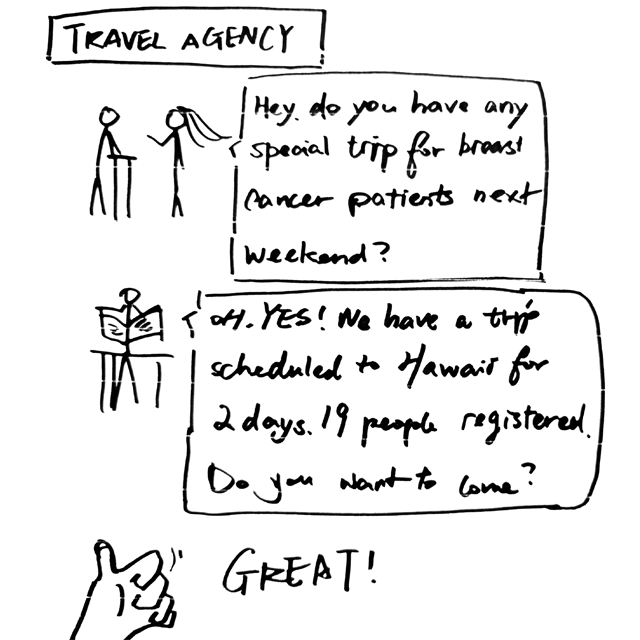 TRAVEL AGENCY
Hey. do you have any
special trip for breast
cancer patients next
weekend?
OH. YES! We have a trip
scheduled to Hawaii for
2 days. 19 people registered.
Do you want to come?
GREAT!